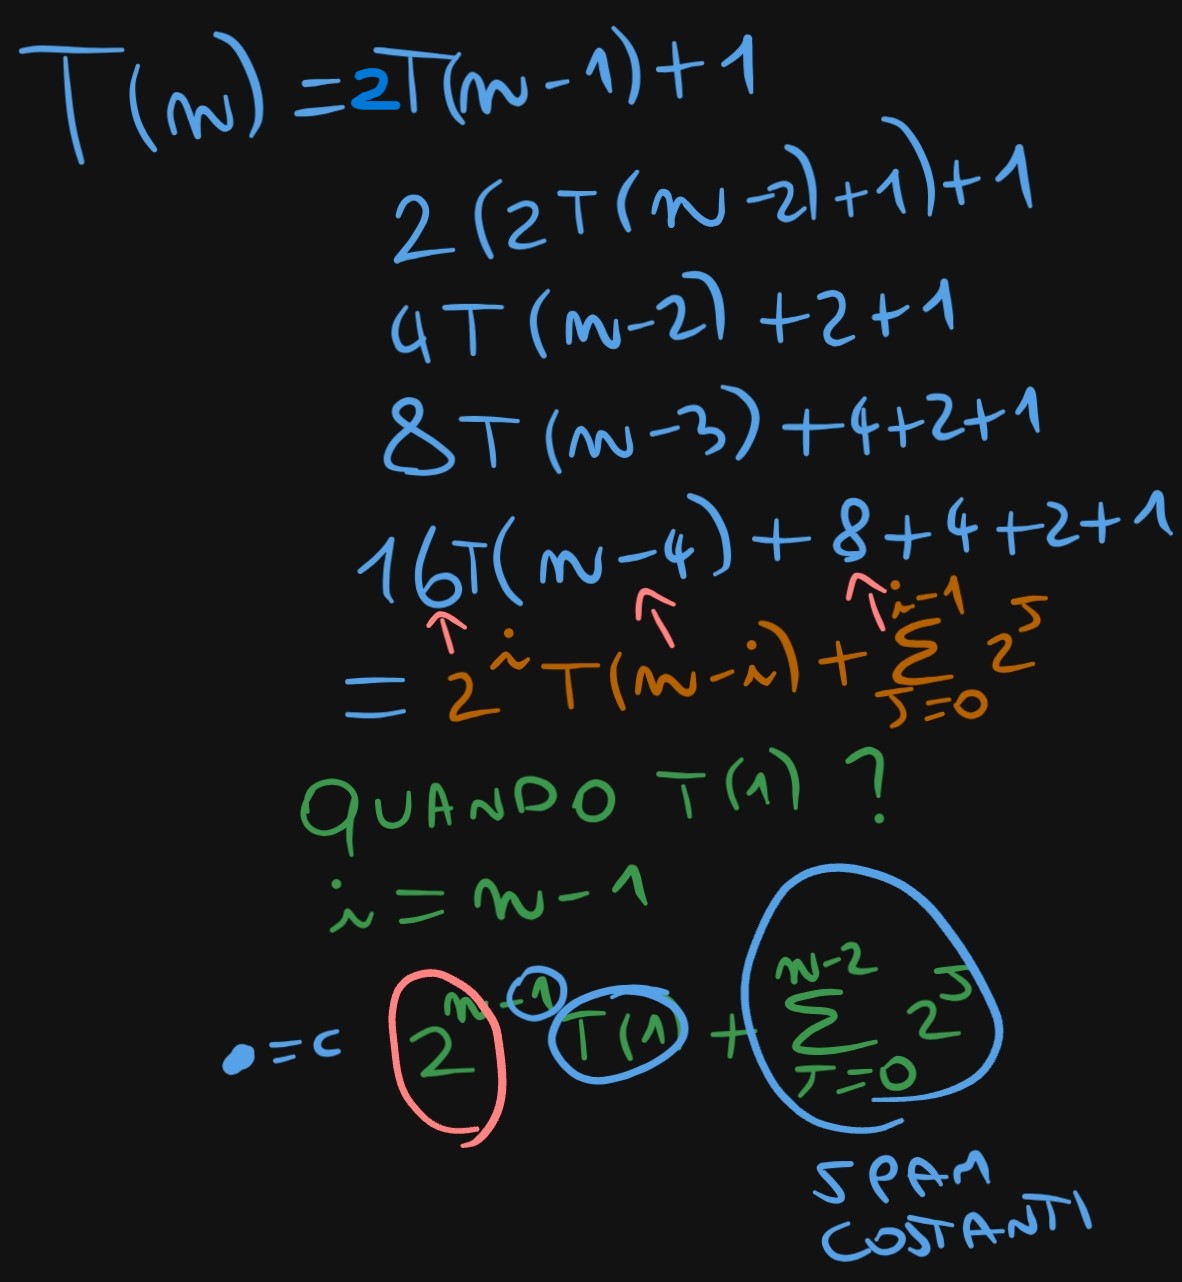 T(n) = 2T(n-1)+1
2(2T(n-2)+1)+1
4T(n-2)+2+1
8T(n-3)+4+2+1
16T(n-4)+8+4+2+1
= 2^i T(n-i) + ∑_{J=0}^{i-1} 2^J
QUANDO T(1)?
i = n-1
● = c 2^{n-1} T(1) + ∑_{J=0}^{n-2} 2^J
SPAM
COSTANTI